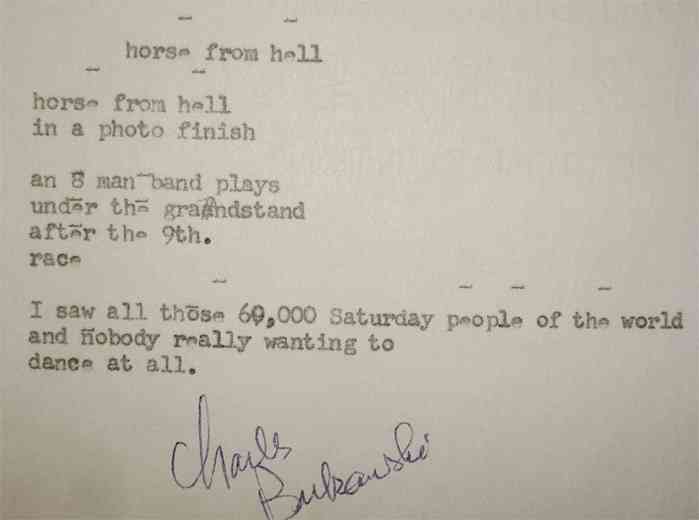 horse from hell
horse from hell
in a photo finish
an 8 man band plays
under the grandstand
after the 9th.
race
I saw all those 60,000 Saturday people of the world
and nobody really wanting to
dance at all.
Charles
Bukowski